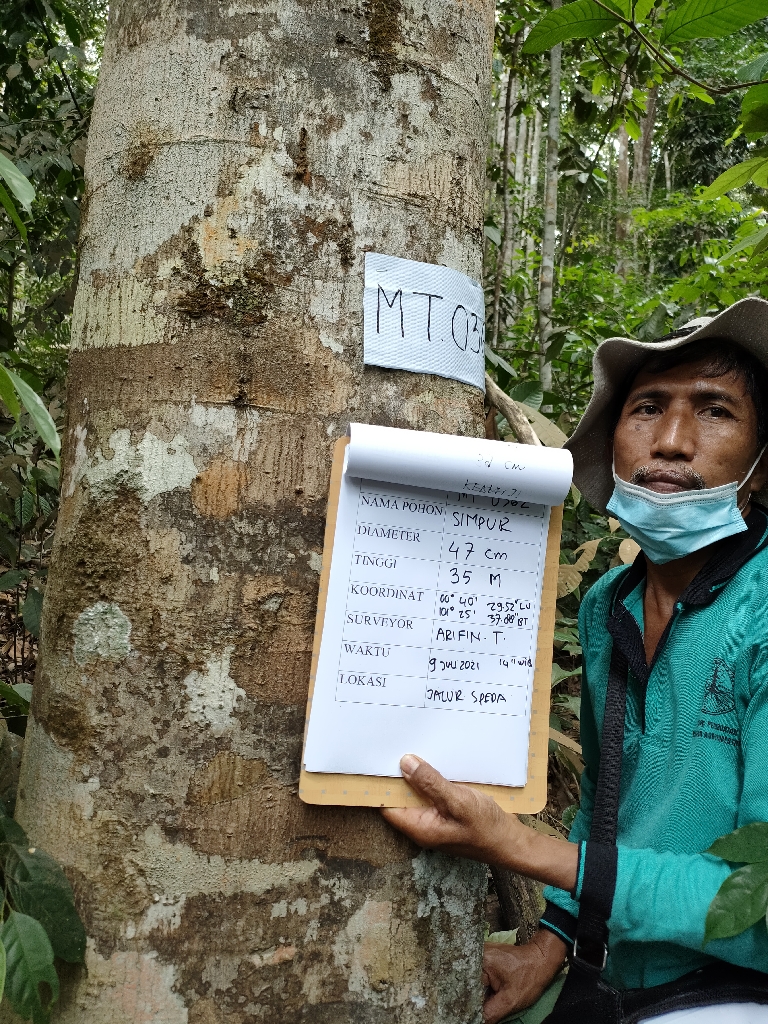 MT.03
cm
NAMA POHON SIMPUR
DIAMETER 47 cm
TINGGI 35 M
KOORDINAT 00° 40' 29.52" LU
101° 25' 37.08" BT
SURVEYOR ARIFIN. T.
WAKTU 9 JULI 2021 14" WIB
LOKASI JALUR SPEDA